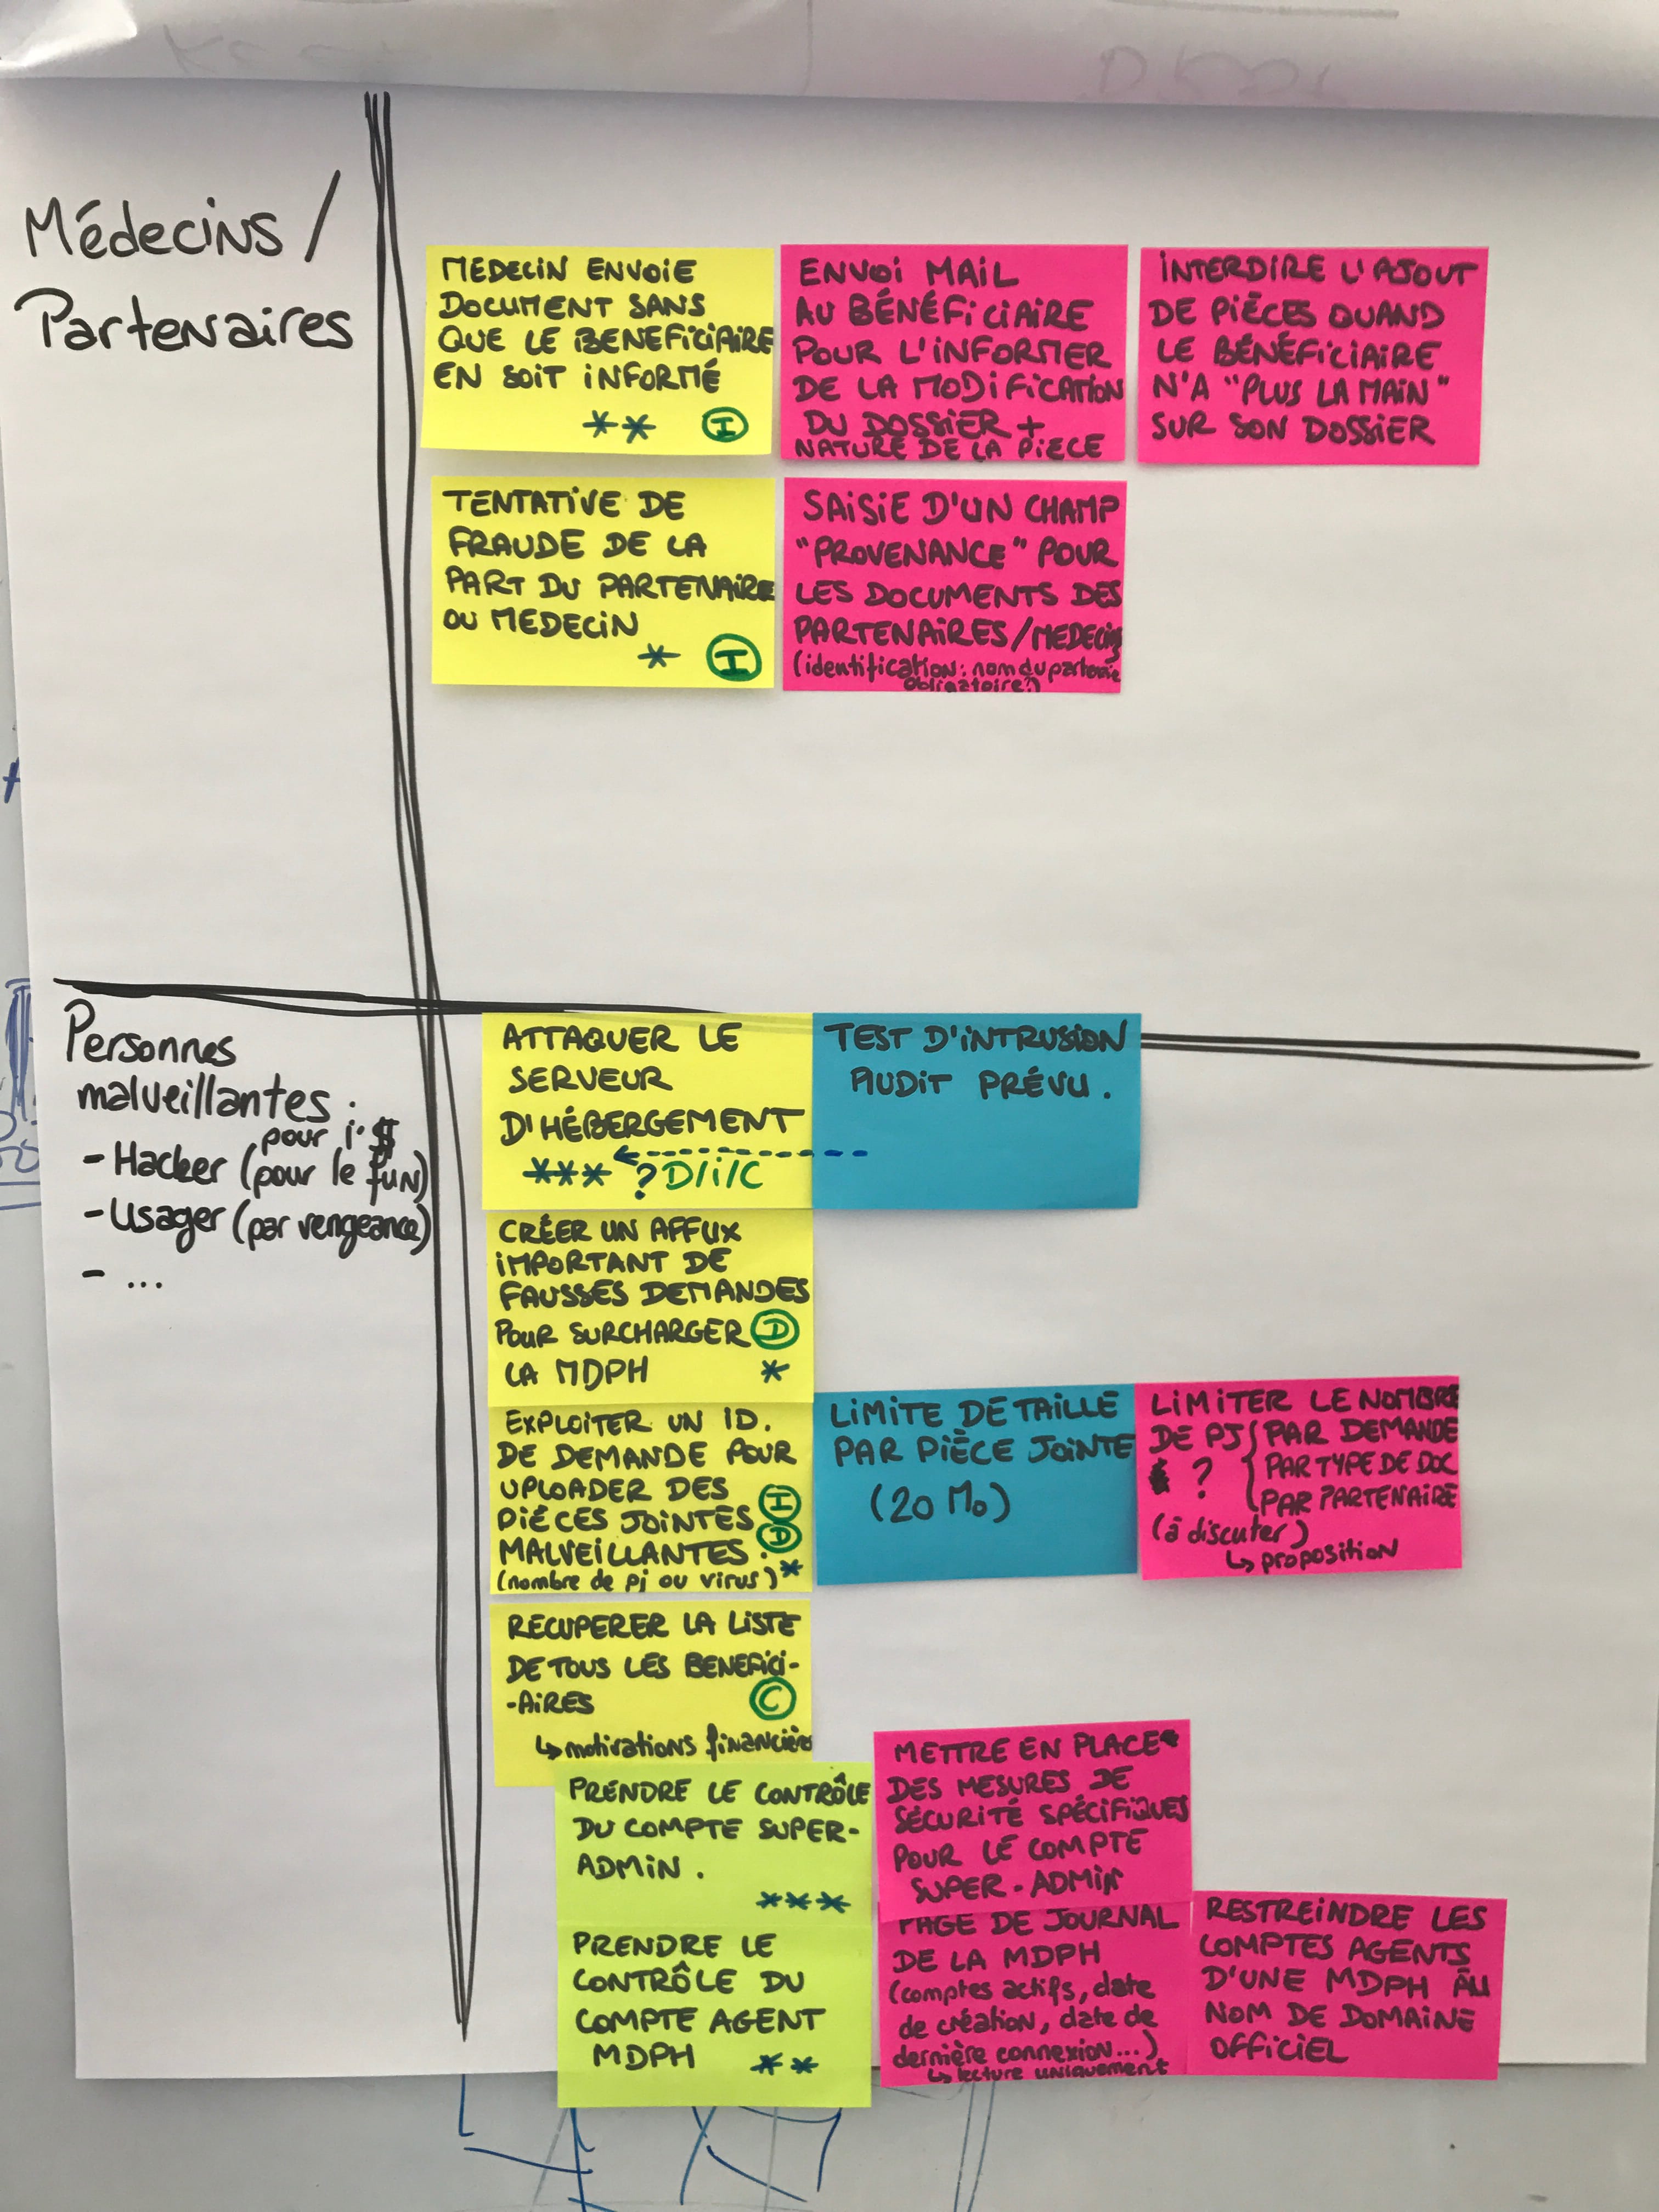 Médecins /
Partenaires
MEDECIN ENVOIE
DOCUMENT SANS
QUE LE BENEFICIAIRE
EN SOIT INFORMÉ
** I
ENVOI MAIL
AU BÉNÉFICIAIRE
POUR L'INFORMER
DE LA MODIFICATION
DU DOSSIER +
NATURE DE LA PIECE
INTERDIRE L'AJOUT
DE PIÈCES QUAND
LE BÉNÉFICIAIRE
N'A "PLUS LA MAIN"
SUR SON DOSSIER
TENTATIVE DE
FRAUDE DE LA
PART DU PARTENAIRE
OU MEDECIN
* I
SAISIE D'UN CHAMP
"PROVENANCE" POUR
LES DOCUMENTS DES
PARTENAIRES/MEDECINS
(identification: nom du partenaire
obligatoire?)
Personnes
malveillantes :
pour i. $
- Hacker (pour le fun)
- Usager (par vengeance)
- ...
ATTAQUER LE
SERVEUR
D'HÉBERGEMENT
*** ? D/i/C
TEST D'INTRUSION
AUDIT PRÉVU.
CRÉER UN AFFUX
IMPORTANT DE
FAUSSES DEMANDES
POUR SURCHARGER D
LA MDPH *
EXPLOITER UN ID.
DE DEMANDE POUR
UPLOADER DES
PIÉCES JOINTES I
MALVEILLANTES. D
(nombre de pj ou virus) *
LIMITE DE TAILLE
PAR PIÈCE JOINTE
(20 Mo)
LIMITER LE NOMBRE
DE PJ { PAR DEMANDE
? PAR TYPE DE DOC
PAR PARTENAIRE
(à discuter)
↳ proposition
RECUPERER LA LISTE
DE TOUS LES BENEFICI-
-AIRES C
↳ motivations financière
PRENDRE LE CONTRÔLE
DU COMPTE SUPER-
ADMIN.
***
METTRE EN PLACE
DES MESURES DE
SÉCURITÉ SPÉCIFIQUES
POUR LE COMPTE
SUPER-ADMIN
PRENDRE LE
CONTRÔLE DU
COMPTE AGENT
MDPH **
PAGE DE JOURNAL
DE LA MDPH
(comptes actifs, date
de création, date de
dernière connexion...)
↳ lecture uniquement
RESTREINDRE LES
COMPTES AGENTS
D'UNE MDPH AU
NOM DE DOMAINE
OFFICIEL